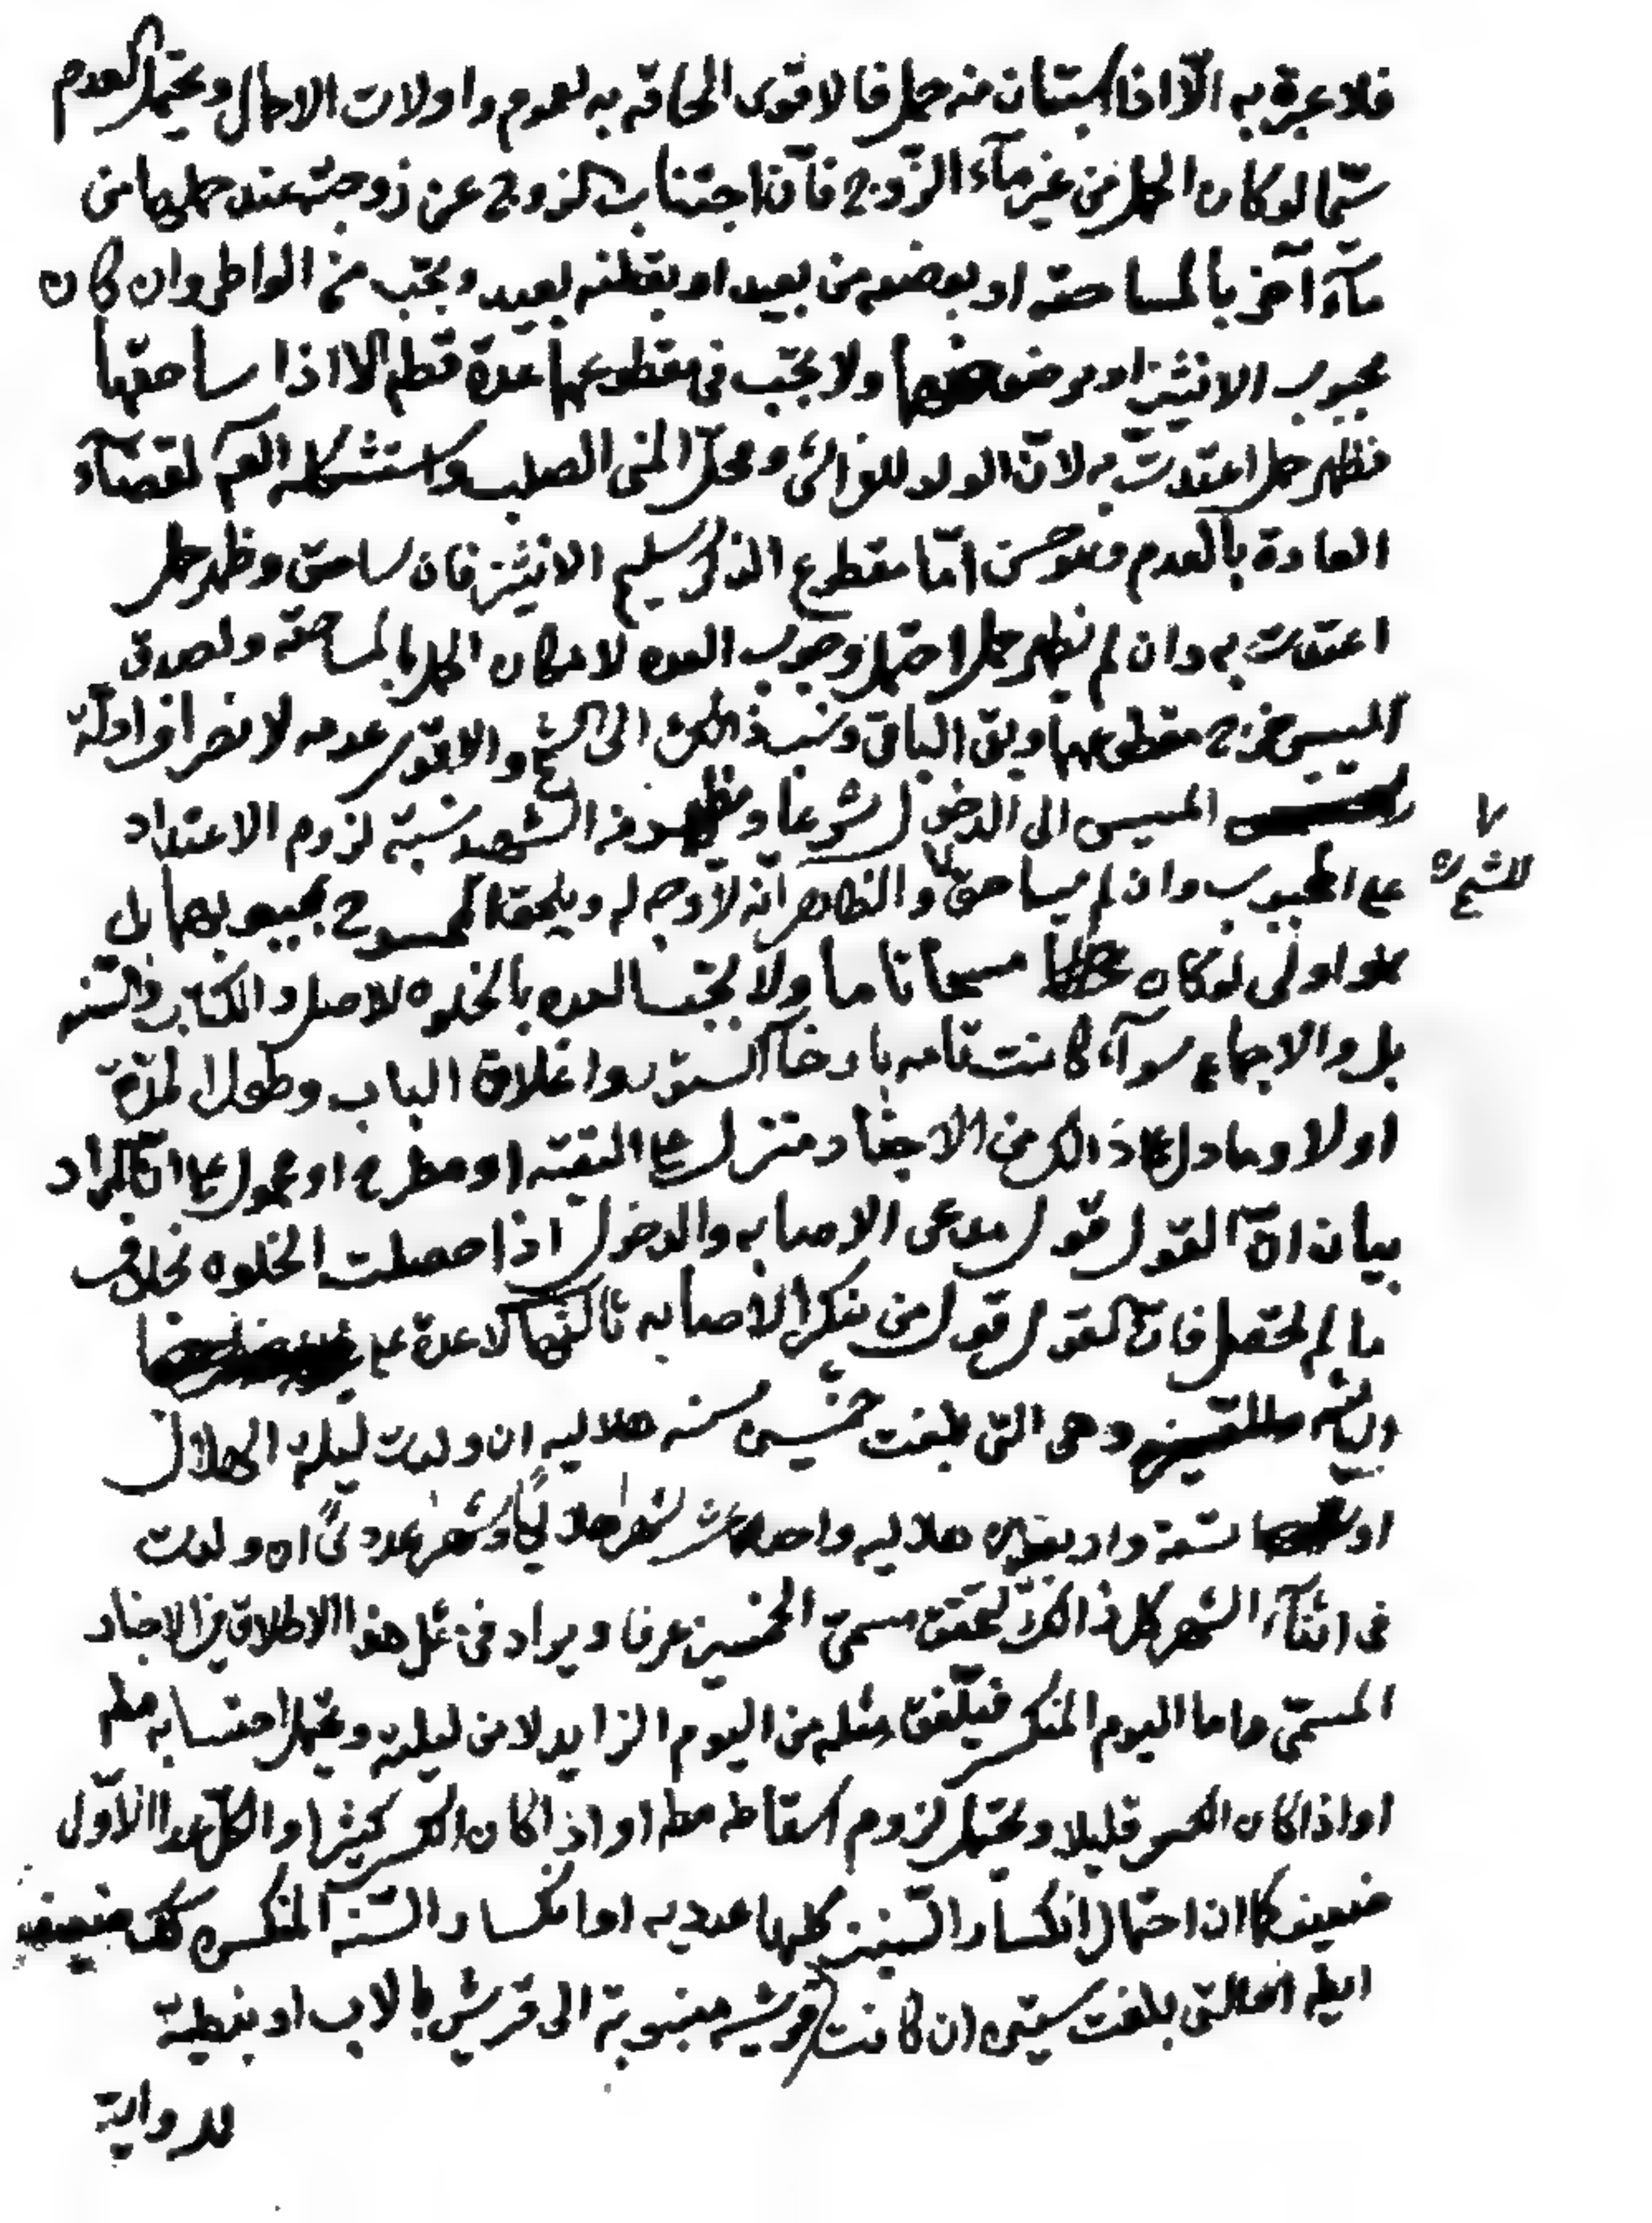 فلا عبرة به الّا اذا استبان منه حمل فالاقوى الحاقه به لعموم واولات الاحمال ويحتمل العدم
سيّما لو كان الحمل من غير مآء الزّوج فانّ اجتناب الزوج عن زوجته عند حملها من
مآء آخر بالمساحقة او بوضعه من بعيد او بقطنه بعيد ويجب من الواطي وان كان
مجبوب الانثيين او مرضوضهما ولا يجب في مقطوعهما عدة قطم الا اذا ساحقها
فظهر حمل اعتدت به لانّ الولد للفراش ومحلّ المني الصلب واستشكله العم لقضآء
العادة بالعدم وهو حسن امّا مقطوع الذكر سليم الانثيين فان ساحق وظهر حمل
اعتدت به وان لم يظهر حمل احتمل وجوب العده لامكان الحمل بالمساحقه ولصدق
المسيس خرج مقطوعهما وبقي الباقي ونسب ذلك الى الشيخ والاقوى عدمه لانصراف ادلّة
المسيس الى الدخول شرعا وفي الشهيد نسبة لزوم الاعتداد
للشيخ ره
على المجبوب وان لم يساحق والظاهر انّه لا وجه له ويلحق الممسوح بمجبوبهما بل
هو اولى لو كان مسحا تاما ولا يجب العده بالخلوه للاصل والكتاب والسنه
بل والاجماع سوآء كانت تامه بارخآء الستور واغلاق الباب وطول المدّة
او لا وما دل على ذلك من الاخبار منزل على التقيه او مطرح او محمول على انّ المراد
بيان انّ القول قول مدعي الاصابه والدخول اذا حصلت الخلوه بخلاف
ما لم تحصل فانّ القول قول من ينكر الاصابه ثالثها لا عدة على
اليائسه وهي التي بلغت خمسين سنه هلاليه ان ولدت ليلة الهلال
او تسعة واربعين هلاليه واحد عشر شهرا هلاليًا وشهرا عدديًّا ان ولدت
في اثنآء الشهر كل ذلك لتحقق مسمّى الخمسين عرفا ويراد في مثل هذا الاطلاق في الاخبار
المسمّى واما اليوم المنكسر فيلّفق مثله من اليوم الزايد لا من ليلته ويحتمل احتسابه مطم
او اذا كان الكسر قليلا ويحتمل لزوم اسقاطه مطم او اذا كان الكسر كثيرا والكلّ عدا الاوّل
ضعيف كما ان احتمال انكسار السّنين كلها عدديه او انكسار السّنه المنكسره كك ضعيف
ايضا او التي بلغت ستين ان كانت قرشيه منسوبة الى قريش بالاب او نبطية
للرواية